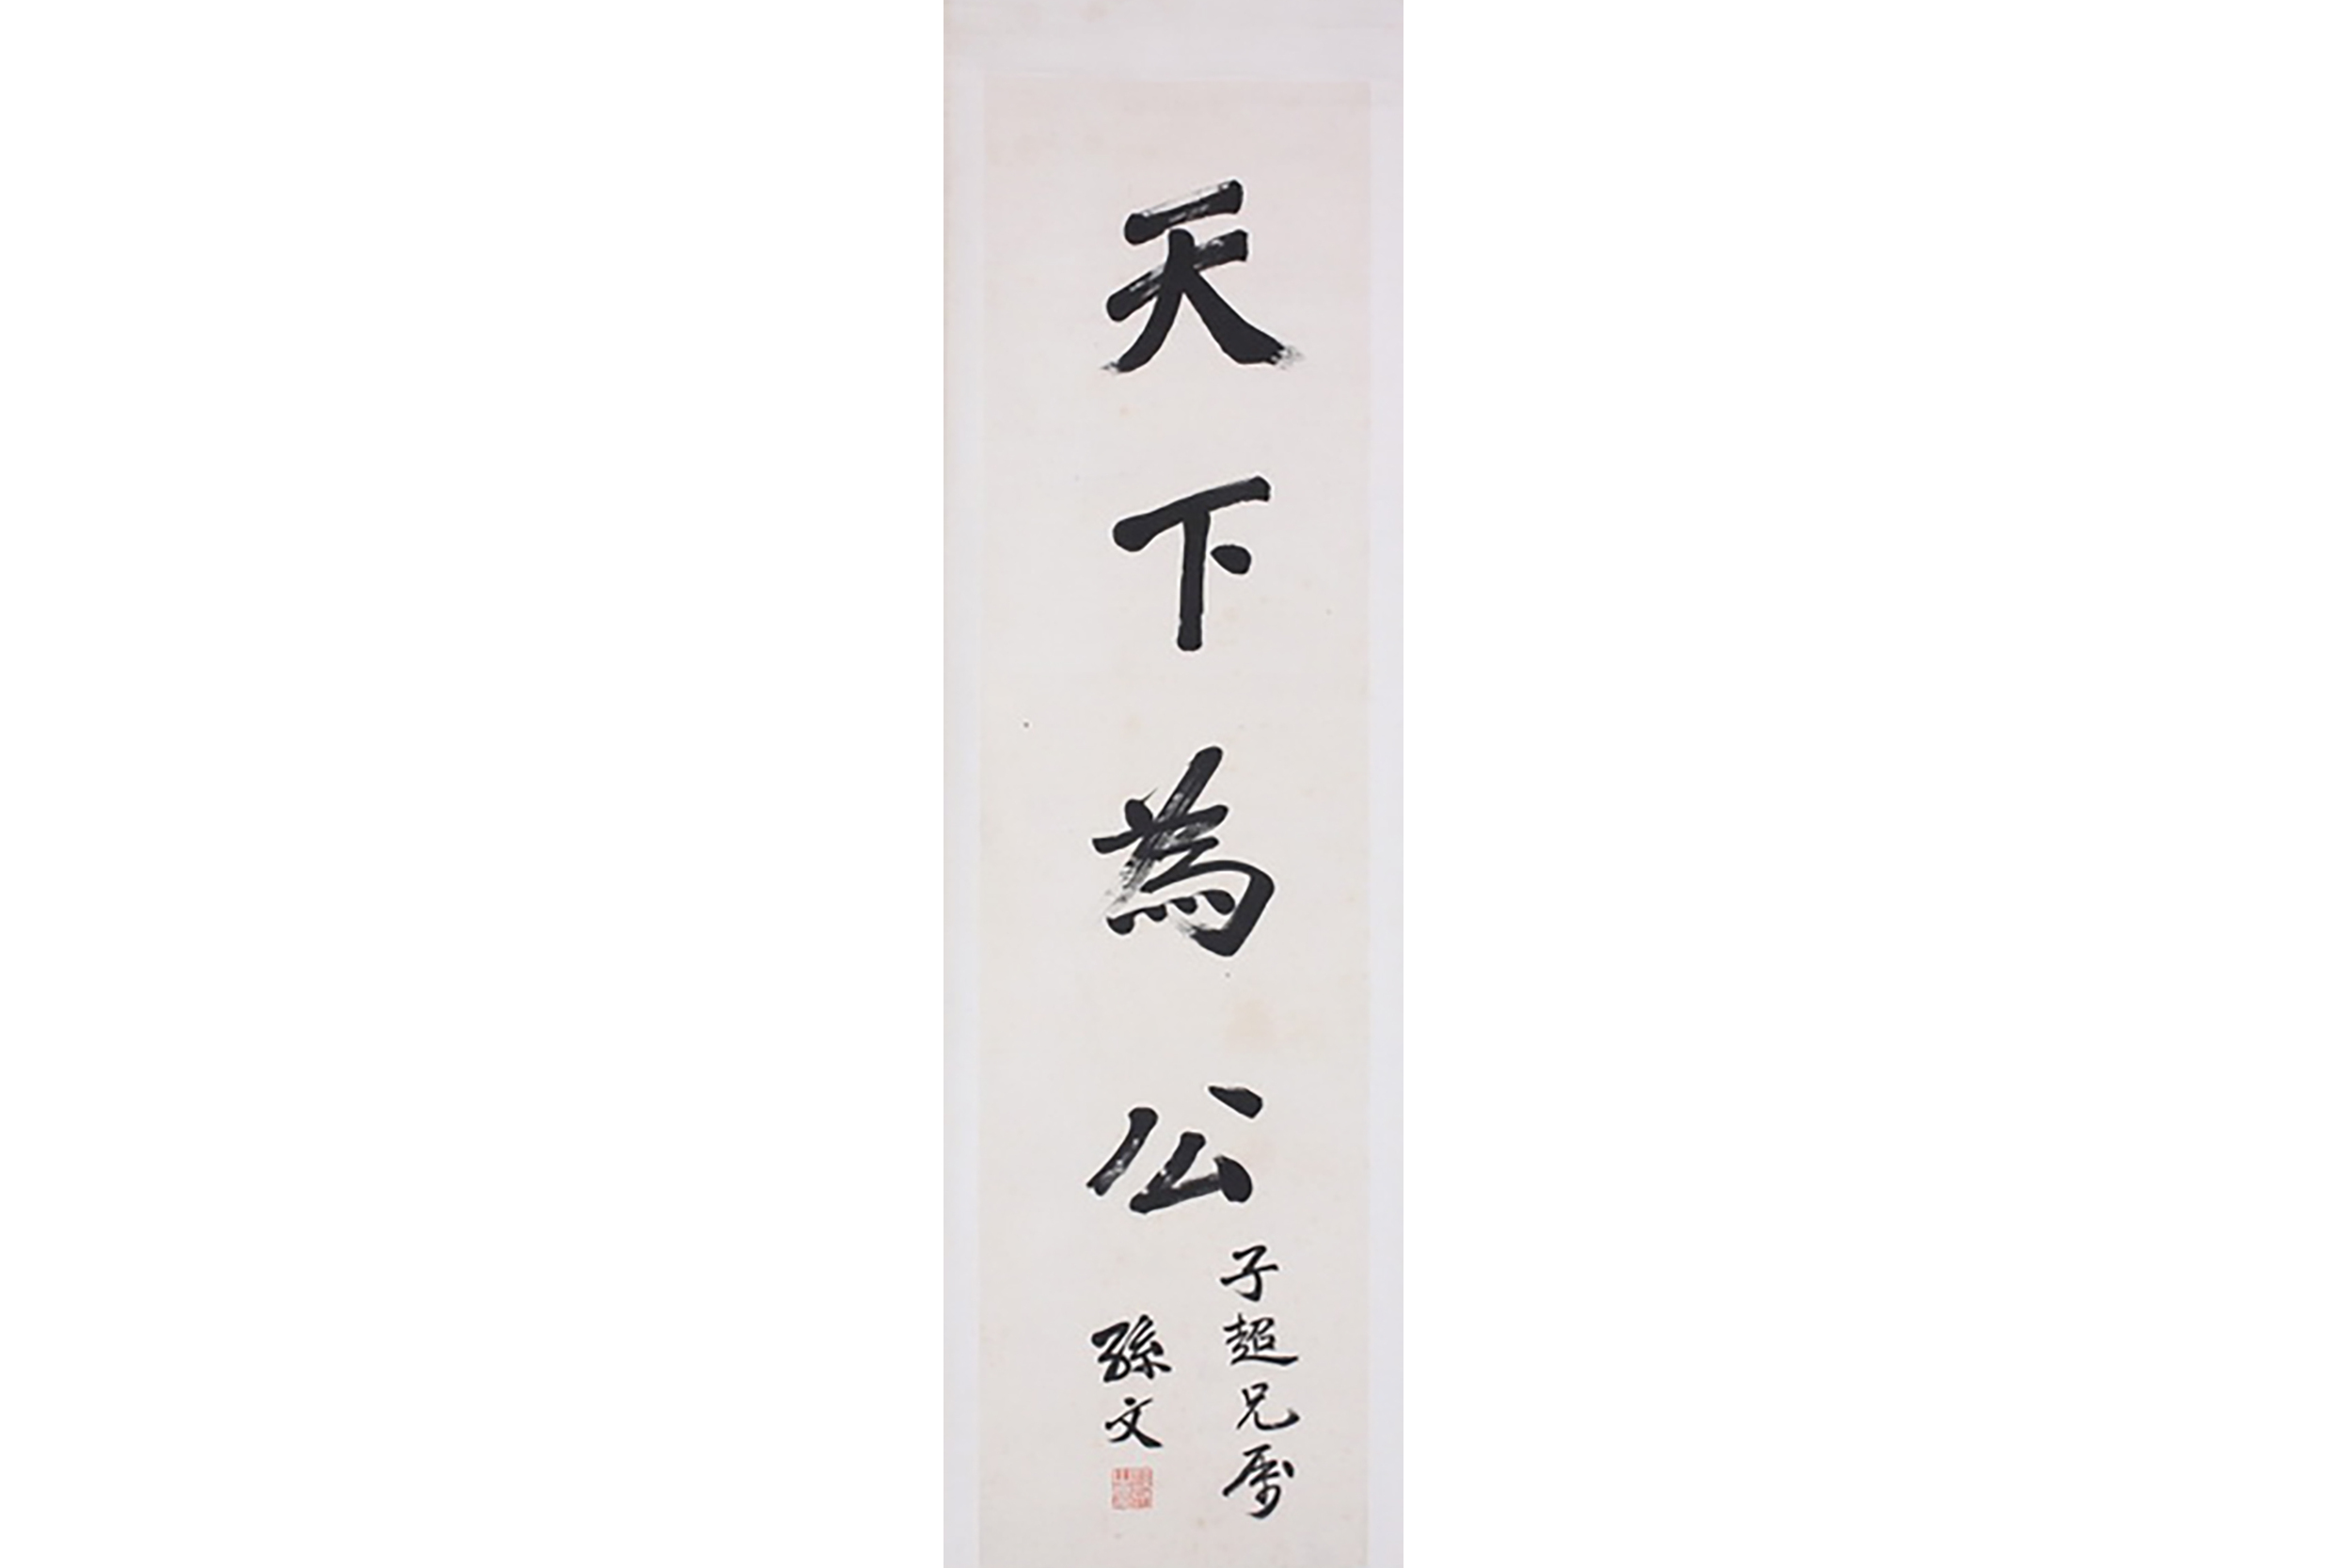 天下為公
子超兄屬
孫文